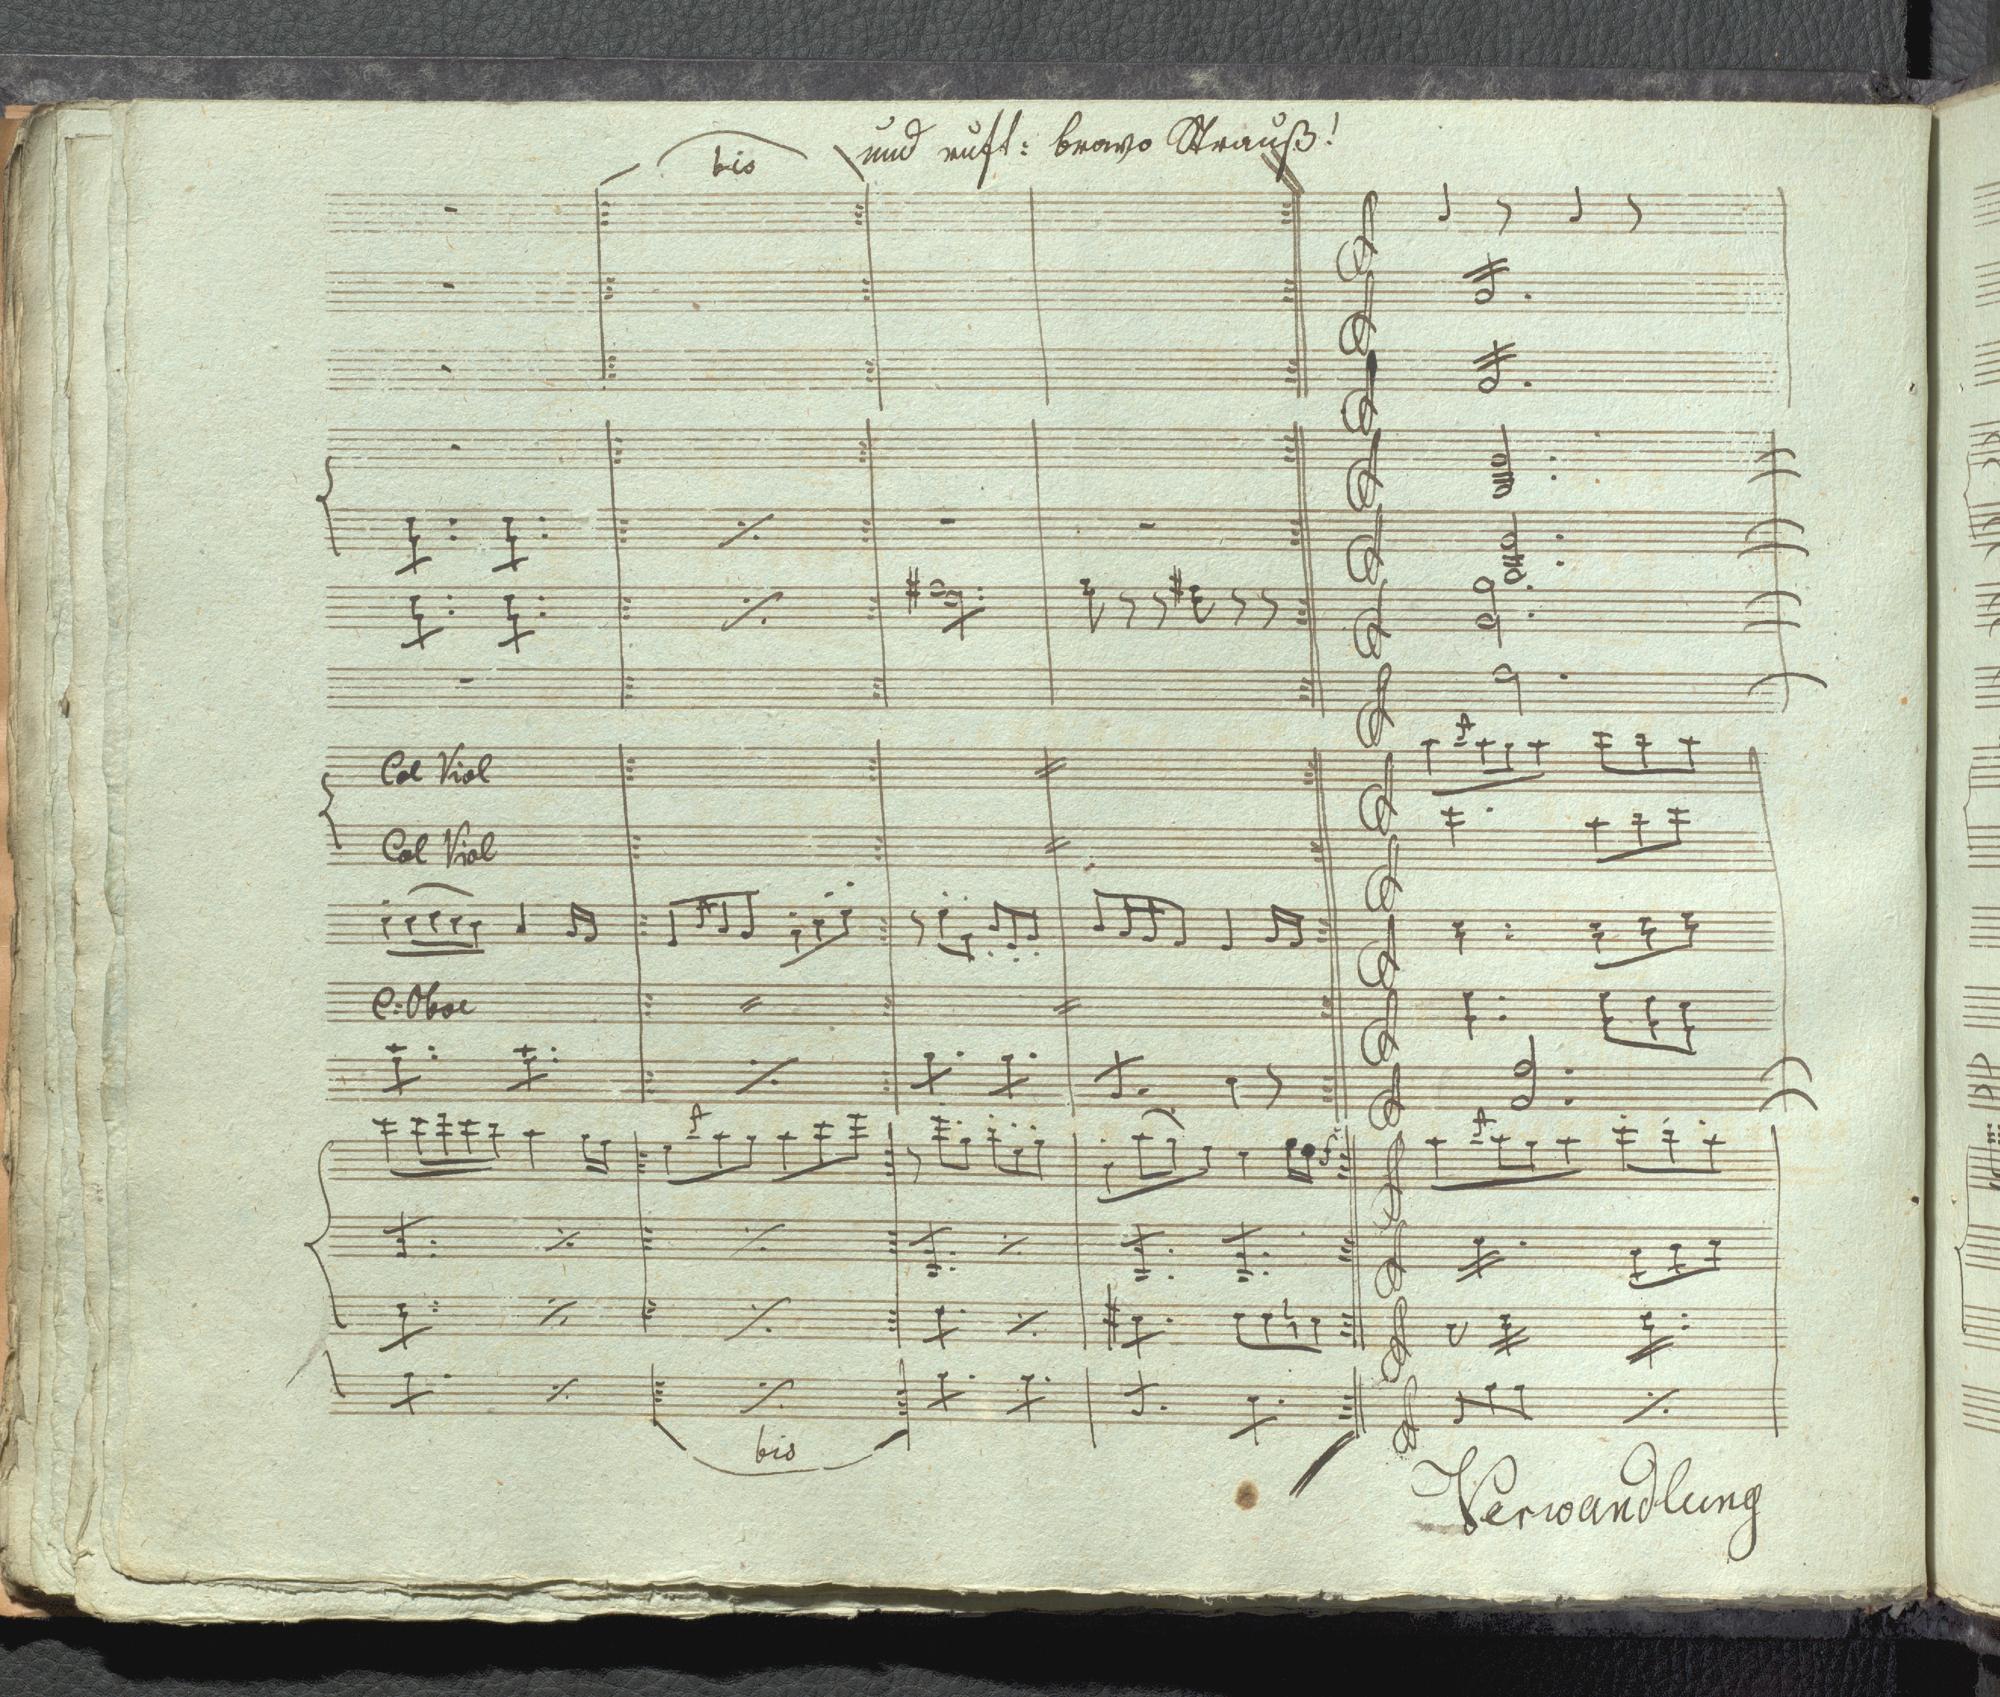 und ruft: bravo Strauß!
bis
Col Viol
Col Viol
C: Oboe
bis
Verwandlung